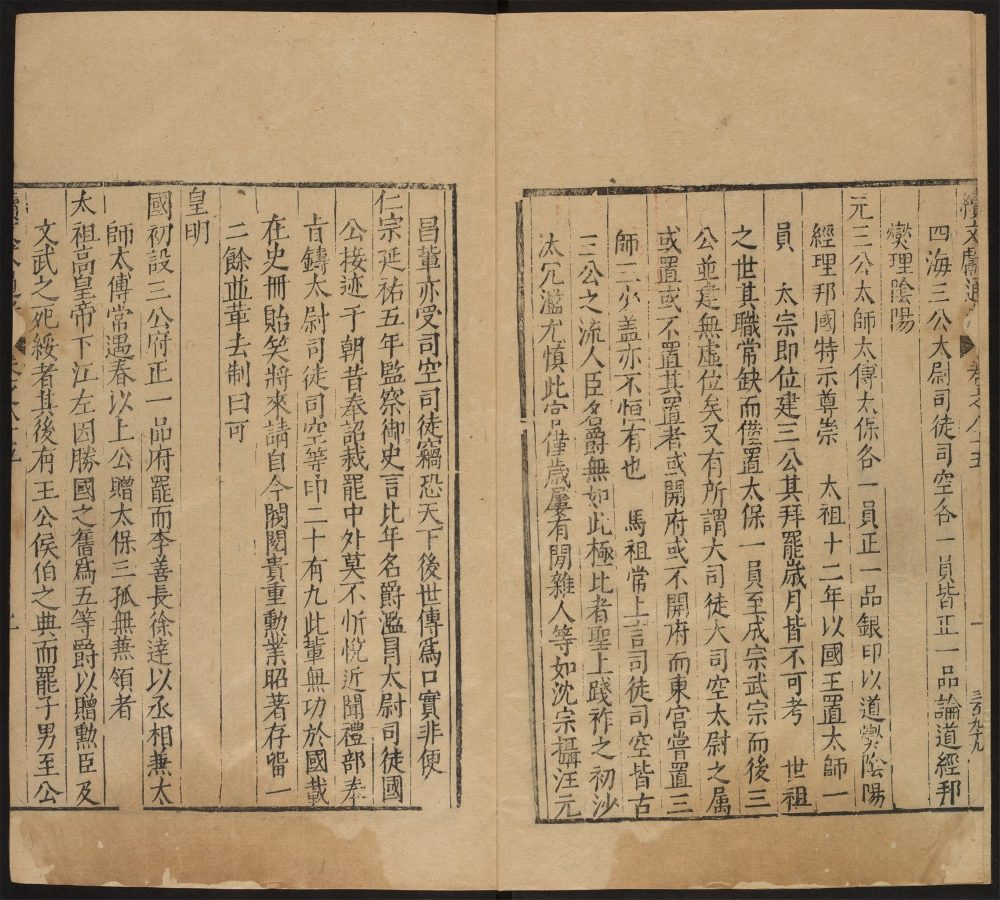 續文獻通 卷之八十五
一
三百九十九
四海三公大尉司徒司空各一員皆正一品論道經邦
燮理陰陽
元三公太師太傅太保各一員正一品銀印以道燮陰陽
經理邦國特示尊崇 太祖十二年以國王置太師一
員 太宗即位建三公其拜罷歲月皆不可考 世祖
之世其職常缺而僅置太保一員至成宗武宗而後三
公並建無虛位矣又有所謂大司徒大司空太尉之属
或置或不置其置者或開府或不開府而東宮嘗置三
師三少盖亦不恒有也 馬祖常上言司徒司空皆古
三公之流人臣名爵無如此極比者聖上踐祚之初沙
汰冗濫尤慎此官僅歲屢有閒雜人等如沈宗攝汪元
昌輩亦受司空司徒竊恐天下後世傳爲口實非便
仁宗延祐五年監察御史言比年名爵濫冒太尉司徒國
公接迹于朝昔奉詔裁罷中外莫不忻悅近聞禮部奉
旨鑄太尉司徒司空等印二十有九此輩無功於國載
在史冊貽笑將來請自今閥閱貴重勳業昭著存留一
二餘並革去制曰可
皇明
國初設三公府正一品府罷而李善長徐達以丞相兼太
師太傅常遇春以上公贈太保三孤無兼領者
太祖高皇帝下江左因勝國之舊爲五等爵以贈勳臣及
文武之死綏者其後有王公侯伯之典而罷子男至公